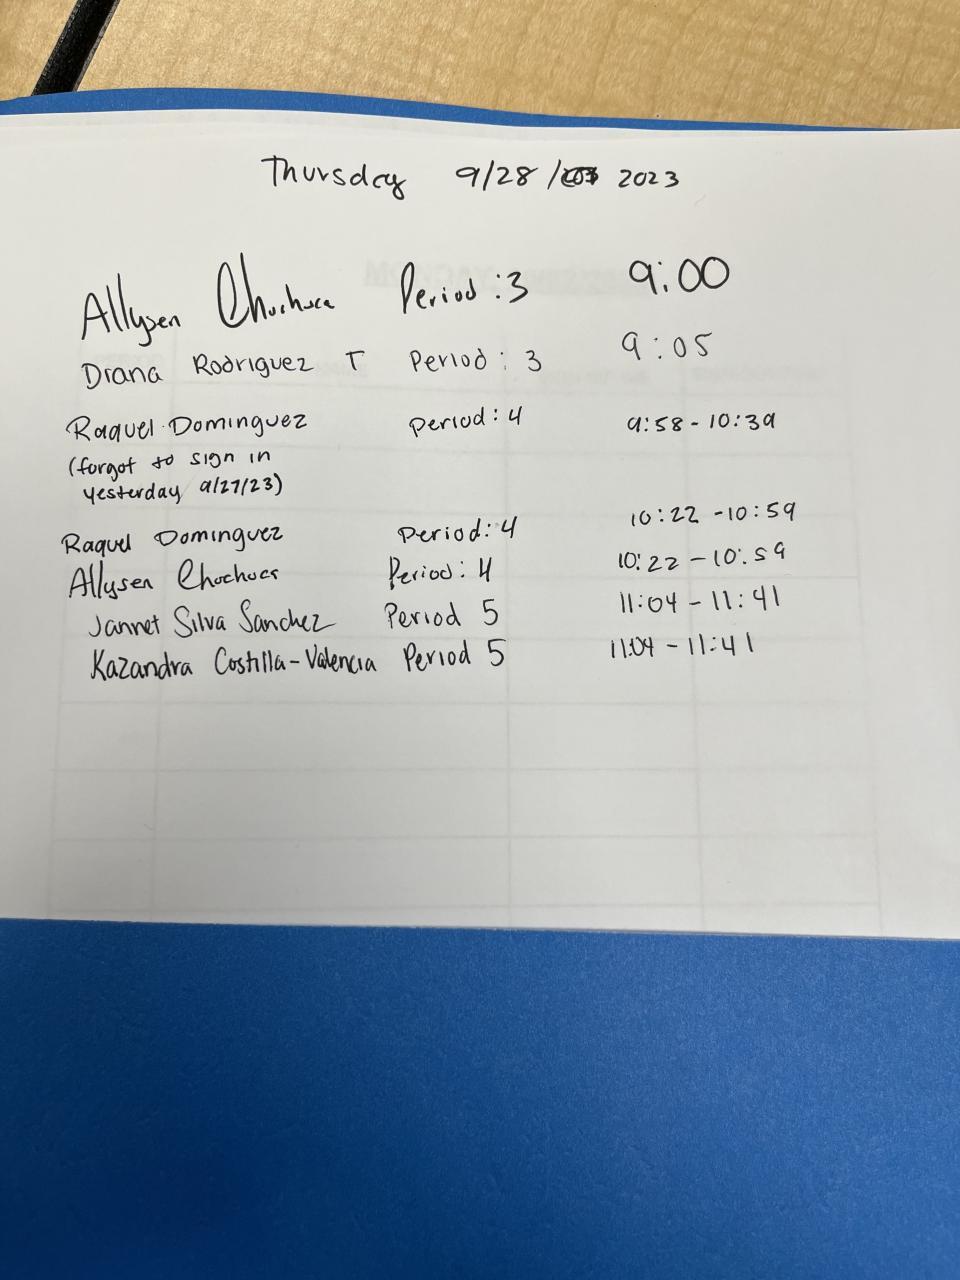 Thursday 9/28/ 2023
Allysen Chuchuca Period:3 9:00
Diana Rodriguez T Period: 3 9:05
Raquel Dominguez period: 4 9:58-10:39
(forgot to sign in
yesterday 9/27/23)
Raquel Dominguez period: 4 10:22-10:59
Allysen Chuchuca Period: 4 10:22-10:59
Jannet Silva Sanchez Period 5 11:04-11:41
Kazandra Costilla-Valencia Period 5 11:04-11:41